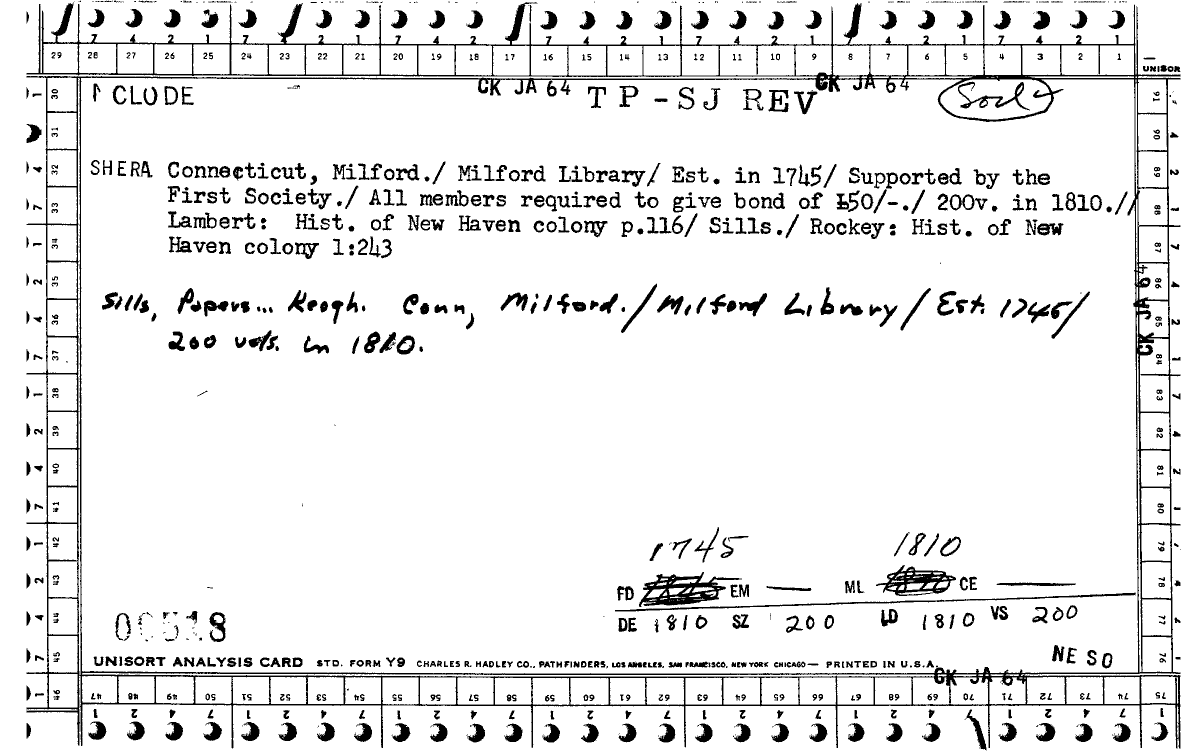 7 4 2 1 7 4 2 1 7 4 2 1 7 4 2 1 7 4 2 1 7 4 2 1 7 4 2 1
29 28 27 26 25 24 23 22 21 20 19 18 17 16 15 14 13 12 11 10 9 8 7 6 5 4 3 2 1
UNISOR
CLODE CK JA 64 TP-SJ REV CK JA 64
SHERA Connecticut, Milford./ Milford Library/ Est. in 1745/ Supported by the
First Society./ All members required to give bond of Ł50/-./ 200v. in 1810.//
Lambert: Hist. of New Haven colony p.116/ Sills./ Rockey: Hist. of New
Haven colony 1:243
Sills, Papers... Keogh. Conn, Milford./Milford Library/ Est. 1745/
200 vols. in 1810.
CK JA 64
1745 1810
FD EM — ML CE —
DE 1810 SZ 200 LD 1810 VS 200
00518
NE SO
UNISORT ANALYSIS CARD STD. FORM Y9 CHARLES R. HADLEY CO., PATHFINDERS, LOS ANGELES, SAN FRANCISCO, NEW YORK CHICAGO — PRINTED IN U.S.A.
CK JA 64
30 31 32 33 34 35 36 37 38 39 40 41 42 43 44 45 46
91 90 89 88 87 86 85 84 83 82 81 80 79 78 77 76
47 48 49 50 51 52 53 54 55 56 57 58 59 60 61 62 63 64 65 66 67 68 69 70 71 72 73 74 75
1 2 4 7 1 2 4 7 1 2 4 7 1 2 4 7 1 2 4 7 1 2 4 7 1 2 4 7 1